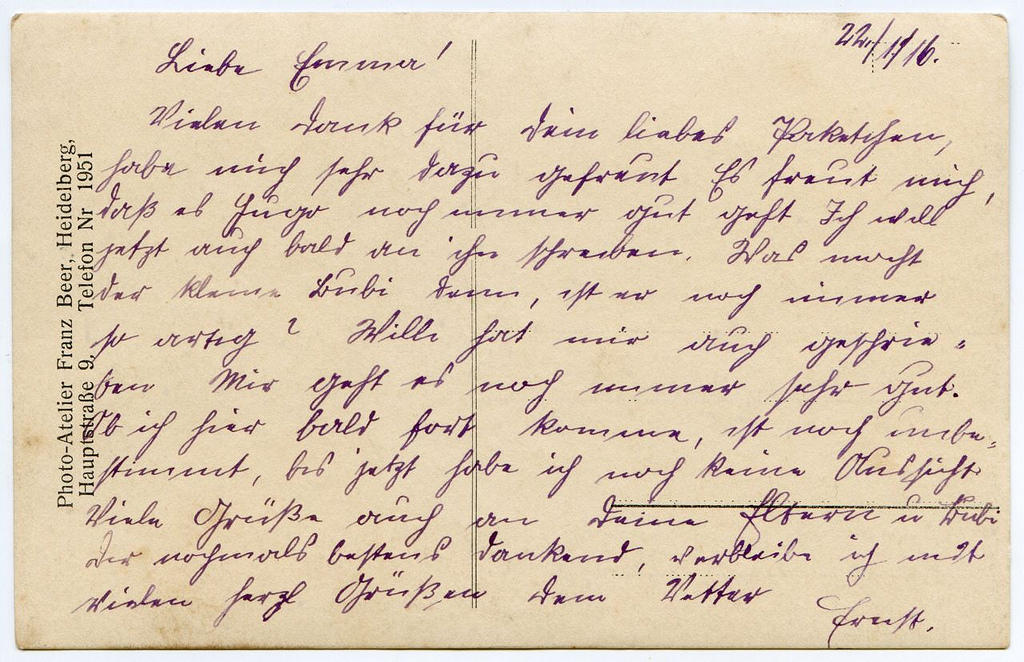 22./1/16.
Liebe Emma!
Vielen Dank für Dein liebes Paketchen,
habe mich sehr dazu gefreut Es freut mich,
daß es Hugo noch immer gut geht Ich will
jetzt auch bald an ihn schreiben. Was macht
der kleine Bubi denn, ist er noch immer
so artig? Willi hat mir auch geschrie-
ben Mir geht es noch immer sehr gut.
Ob ich hier bald fort komme, ist noch unbe-
stimmt, bis jetzt habe ich noch keine Aussicht
Viele Grüße auch an Deine Eltern u Bubi
Dir nochmals bestens dankend, verbleibe ich mit
vielen herzl Grüßen Dein Vetter
Ernst.
Photo-Atelier Franz Beer, Heidelberg,
Hauptstraße 9, Telefon Nr 1951